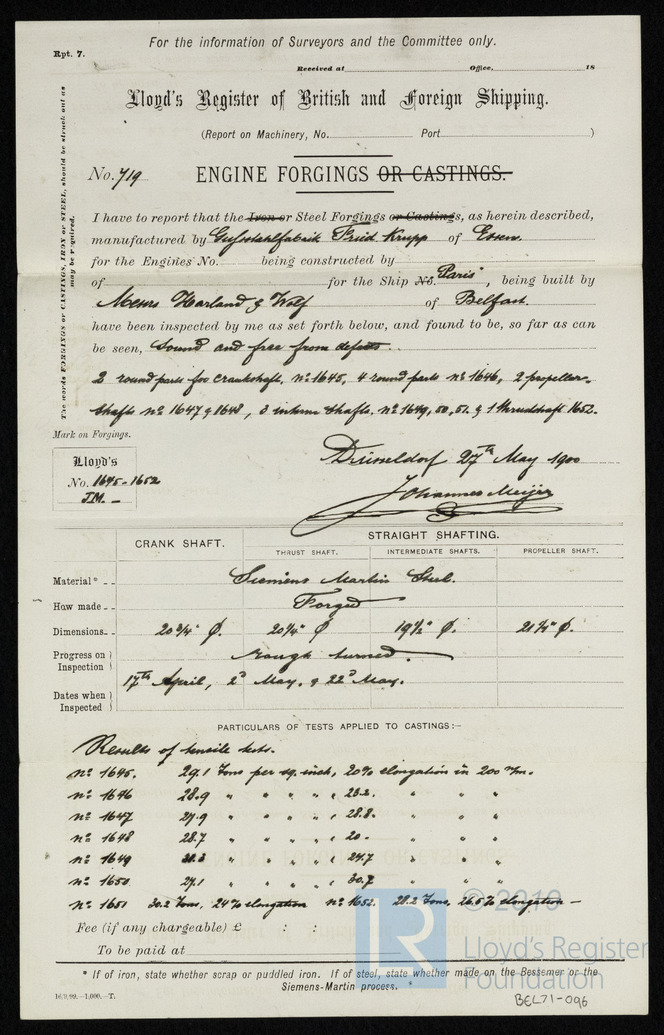 For the information of Surveyors and the Committee only.
Rpt. 7.
Received at Office, 18
Lloyd's Register of British and Foreign Shipping.
(Report on Machinery, No. Port )
No. 719 ENGINE FORGINGS OR CASTINGS.
The words FORGINGS or CASTINGS, IRON or STEEL, should be struck out as may be required.
I have to report that the Iron or Steel Forgings or Castings, as herein described,
manufactured by Gussstahlfabrik Fried Krupp of Essen.
for the Engines No. being constructed by
of for the Ship No. "Paris", being built by
Messrs Harland & Wolf of Belfast.
have been inspected by me as set forth below, and found to be, so far as can
be seen, sound and free from defects.
2 round parts for crankshaft, no 1645, 4 round parts no 1646, 2 propeller-
shafts no 1647 & 1648, 3 interm shafts. no 1649, 50, 51 & 1 thrustshaft 1652.
Mark on Forgings.
Lloyd's
No. 1645-1652
J.M.
Düsseldorf 27th May 1900
Johannes Meijer
CRANK SHAFT. STRAIGHT SHAFTING.
THRUST SHAFT. INTERMEDIATE SHAFTS. PROPELLER SHAFT.
Material* Siemens Martin Steel.
How made Forged
Dimensions 20¾" Ø. 20¼" Ø 19½" Ø. 21¼" Ø.
Progress on Inspection rough turned.
Dates when Inspected 17th April, 2d May, & 22d May.
PARTICULARS OF TESTS APPLIED TO CASTINGS:—
Results of tensile tests.
no 1645. 29.1 Tons per sq. inch, 20% elongation in 200 m/m.
no 1646 28.9 " " " " " " "
no 1647 27.9 " " " " 28.8. " " "
no 1648 28.7 " " " " 20. " " "
no 1649 " " " " 24.7 " " "
no 1650 27.1 " " " " 30.7 " " "
no 1651 30.2 Tons, 24% elongation no 1652. 28.2 Tons, 26.5% elongation —
Fee (if any chargeable) £ : :
To be paid at
* If of iron, state whether scrap or puddled iron. If of steel, state whether made on the Bessemer or the
Siemens-Martin process.
16.9.99.—1,000.—T.
BEL71-096
© 2019
Lloyd's Register
Foundation